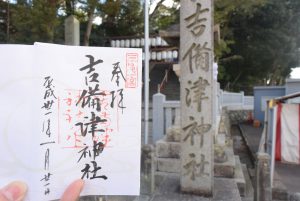 奉拝
吉備津神社
平成卅一年一月卅一日
吉備津神社